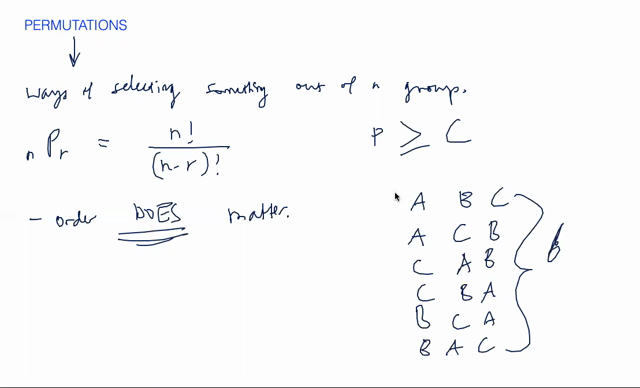 PERMUTATIONS
ways of selecting something out of n group.
nPr = n! / (n-r)!
P ≥ C
- order DOES matter.
A B C
A C B
C A B
C B A
B C A
B A C
6